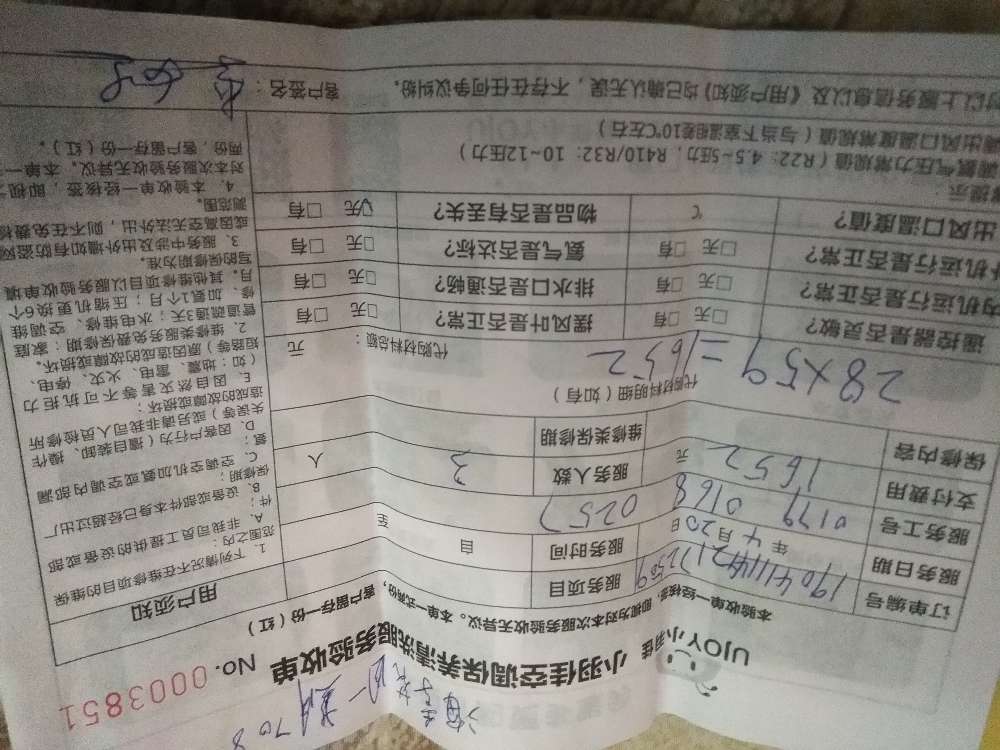 UJOY 小羽佳
小羽佳空调保养清洗服务验收单 No. 0003851
本验收单一经核签,即视为对本次服务验收无异议。本单一式两份,客户留存一份(红)
订单编号 服务项目
服务日期 年 4月20日 服务时间 自 至
服务工号 0179 0168 0257
支付费用 1652 元 服务人数 3 人
保修内容 维修类保修期
代购材料明细(如有)
28×59=1652
代购材料总额: 元
遥控器是否灵敏? □无 □有 摆风叶片是否正常? □无 □有
内机运行是否正常? □无 □有 排水口是否通畅? □无 □有
外机运行是否正常? □无 □有 氨气是否达标? □无 □有
出风口温度值? ℃ 物品是否有丢失? □无 □有
提示:
氨气压力常规值(R22:4.5~5压力,R410/R32:10~12压力)
出风口温度常规值(与当下室温相差10℃左右)
以上服务信息以及《用户须知》均已确认无误,不存在任何争议纠纷。 客户签名:
用户须知
1、下列情况不在维修项目的维保
范围之内:
A、非我司员工提供的设备或部
件;
B、设备或部件本身已经超过出厂
保修期;
C、空调空机加氨或空调内部漏
氨;
D、因客户行为(擅自装卸、操作
失误等)或另请非我司人员检修所
造成的故障或损坏;
E、因自然灾害等不可抗拒力
(如:地震、雷电、火灾、停电、
短路等)原因造成的故障或损坏。
2、维修类服务免费保修期:家庭
管道疏通3天;水电维修、空调维
修、加氨1个月;压缩机更换6个
月。其他维修项目以服务验收单填
写的保修期为准。
3、服务中涉及出外墙如有防盗网
或因高空无法外出,则不在免费检
测范围。
4、本验收单一经核签,即视为
对本次服务验收无异议。本单一式
两份,客户留存一份(红)。